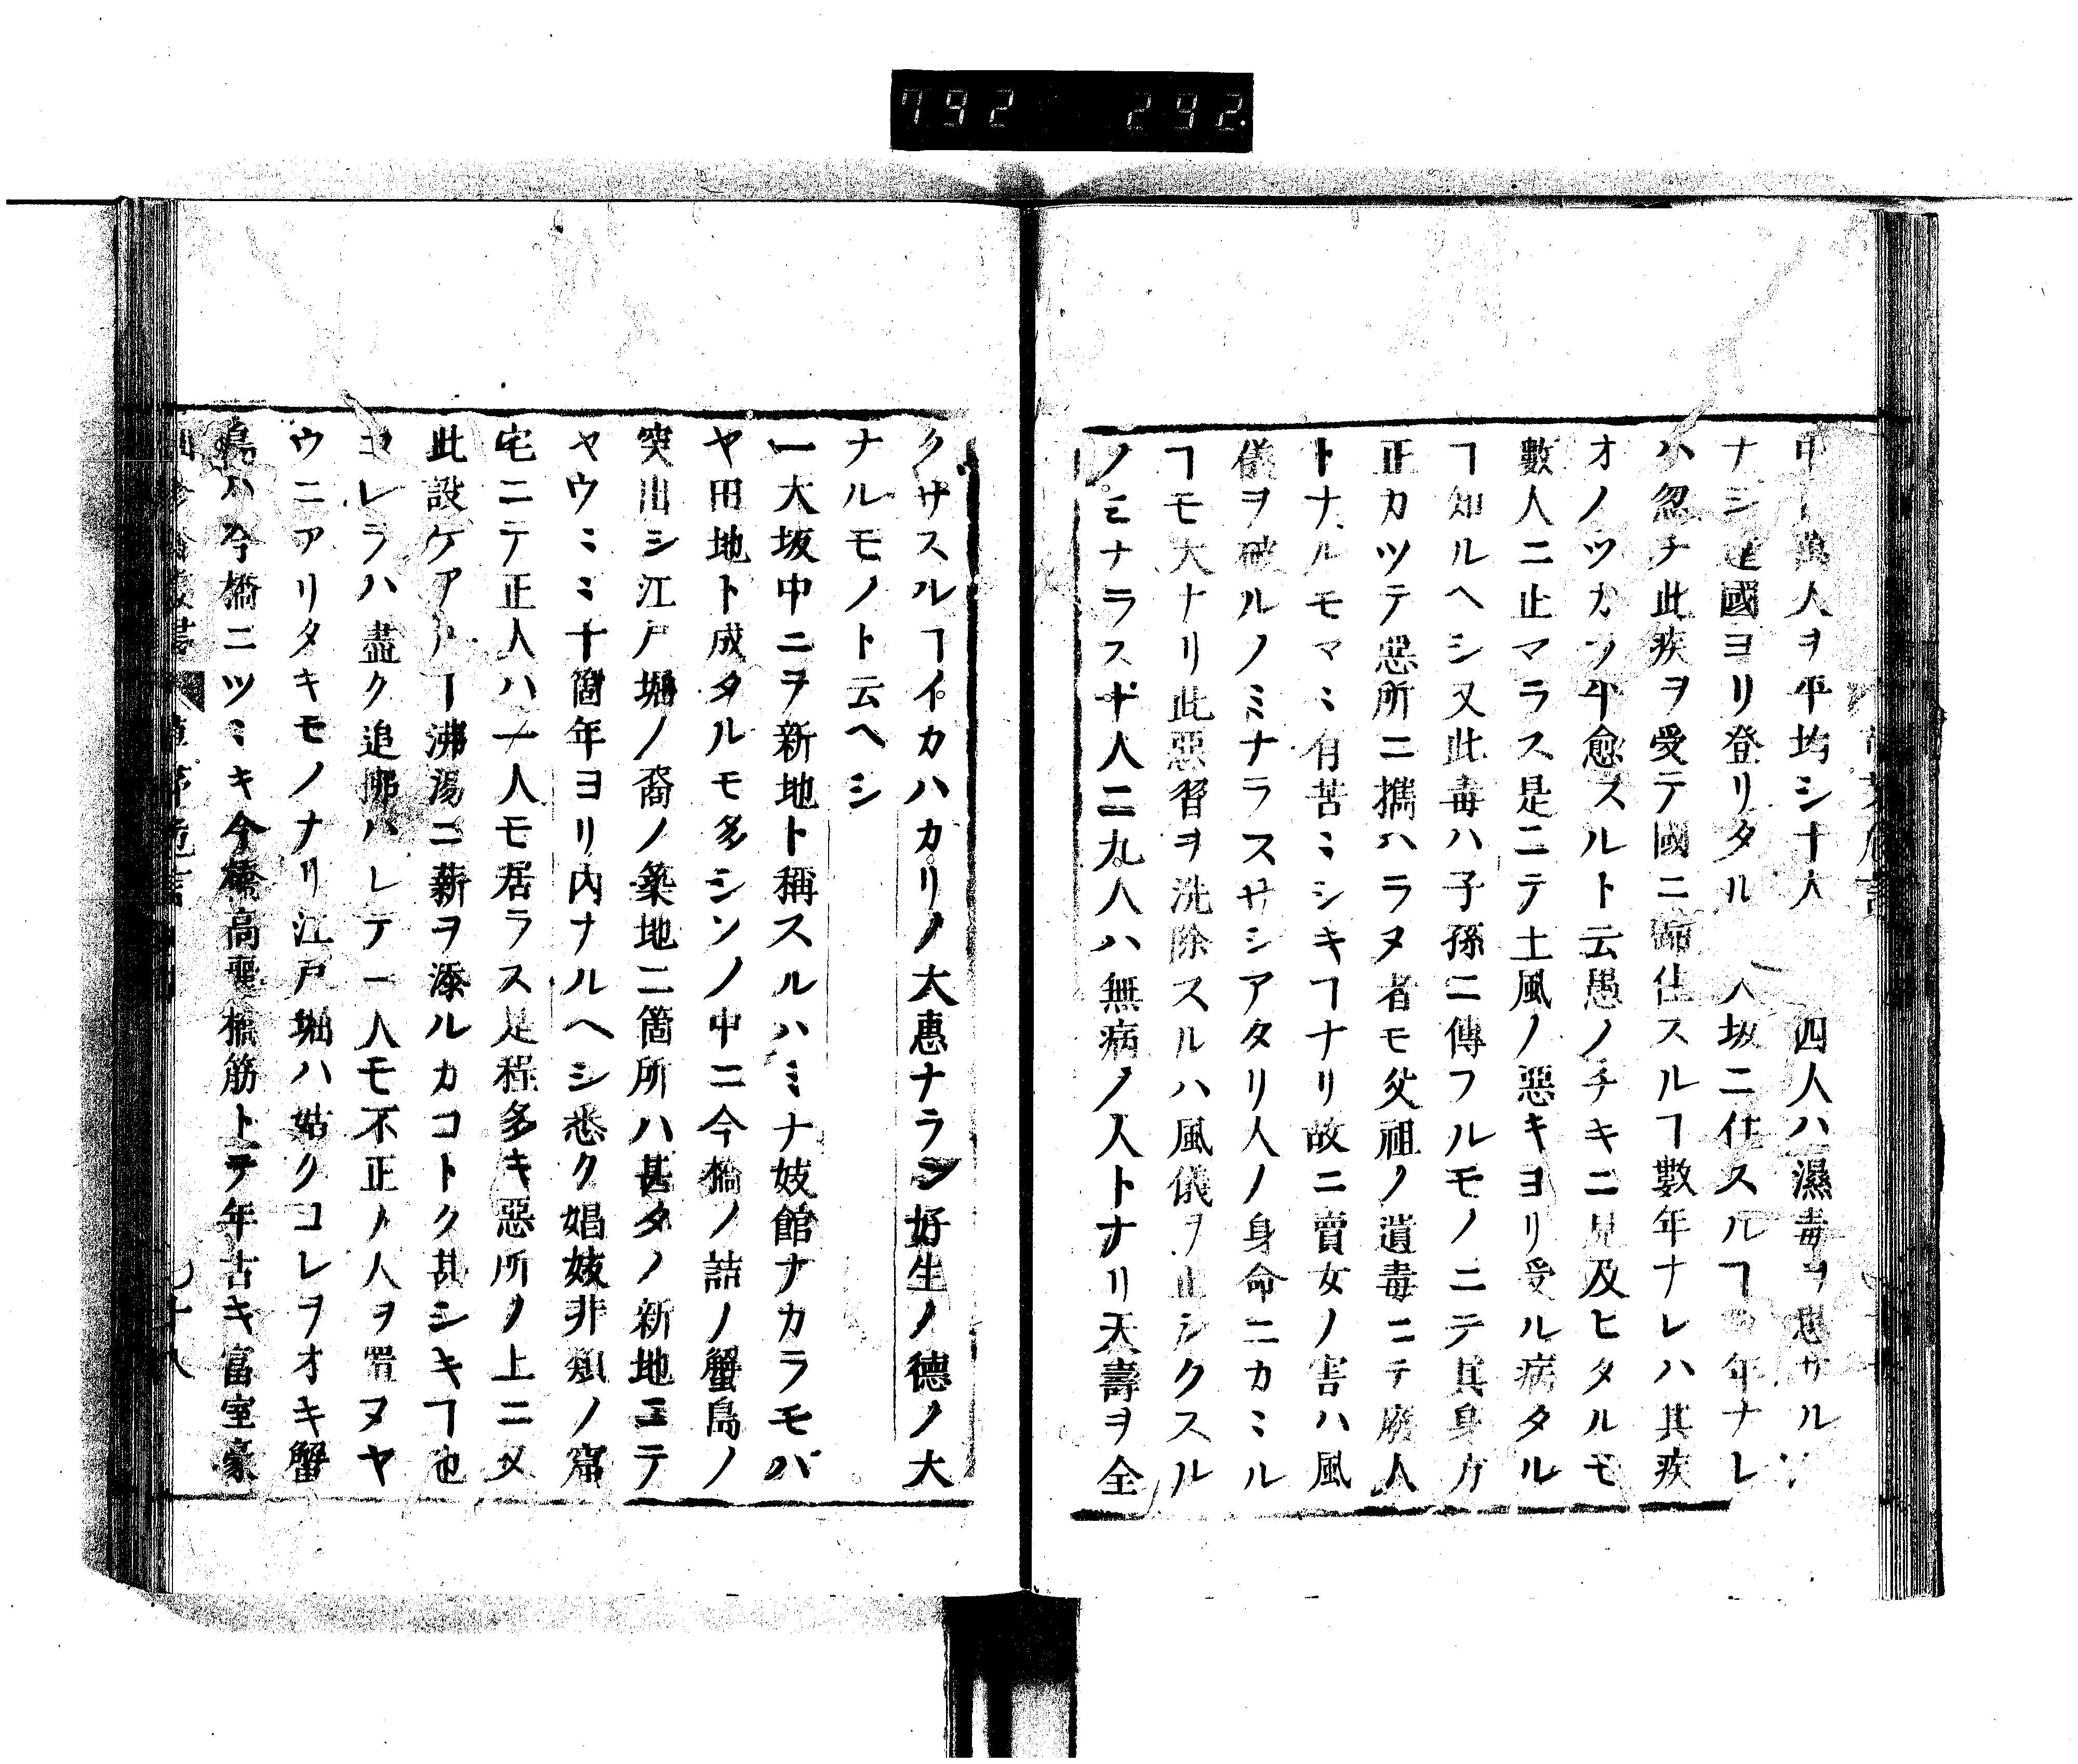 792 292
中 萬人ヲ平均シ十人 四人ハ濕毒ヲ患サル
ナシ 國ヨリ登リタル 人坂ニ仕スルヿ 年ナレ
ハ忽チ此疾ヲ受テ國ニ歸住スルヿ數年ナレハ其疾
オノツカツ平愈スルト云愚ノチキニ見及ヒタルモ
數人ニ止マラス是ニテ土風ノ惡キヨリ受ル病タル
ヿ知ルヘシ又此毒ハ子孫ニ傳フルモノニテ其身カ
正カツテ惡所ニ攜ハラヌ者モ父祖ノ遺毒ニテ廢人
トナルモマヽ有苦ミシキヿナリ故ニ賣女ノ害ハ風
儀ヲ破ルノミナラスサシアタリ人ノ身命ニカミル
ヿモ大ナリ此惡習ヲ洗除スルハ風儀ヲ正シクスル
ノミナラス十人ニ九人ハ無病ノ人トナリ天壽ヲ全
クサスルヿイカハカリノ大惠ナラン好生ノ德ノ大
ナルモノト云ヘシ
一大坂中ニヲ新地ト稱スルハミナ妓館ナカラモバ
ヤ田地ト成タルモ多シソノ中ニ今橋ノ詰ノ蟹島ノ
突出シ江戸堀ノ裔ノ築地二箇所ハ甚タノ新地ニテ
ヤウミミ十箇年ヨリ内ナルヘシ悉ク娼妓非類ノ窟
宅ニテ正人ハ一人モ居ラス是程多キ惡所ノ上ニ又
此設ケアルー沸湯ニ薪ヲ添ルカコトク甚シキヿ也
コレラハ盡ク追拂ハレテ一人モ不正ノ人ヲ置ヌヤ
ウニアリタキモノナリ江戸堀ハ姑クコレヲオキ蟹
島ハ今橋ニツミキ今橋高麗橋筋トテ年古キ富室豪